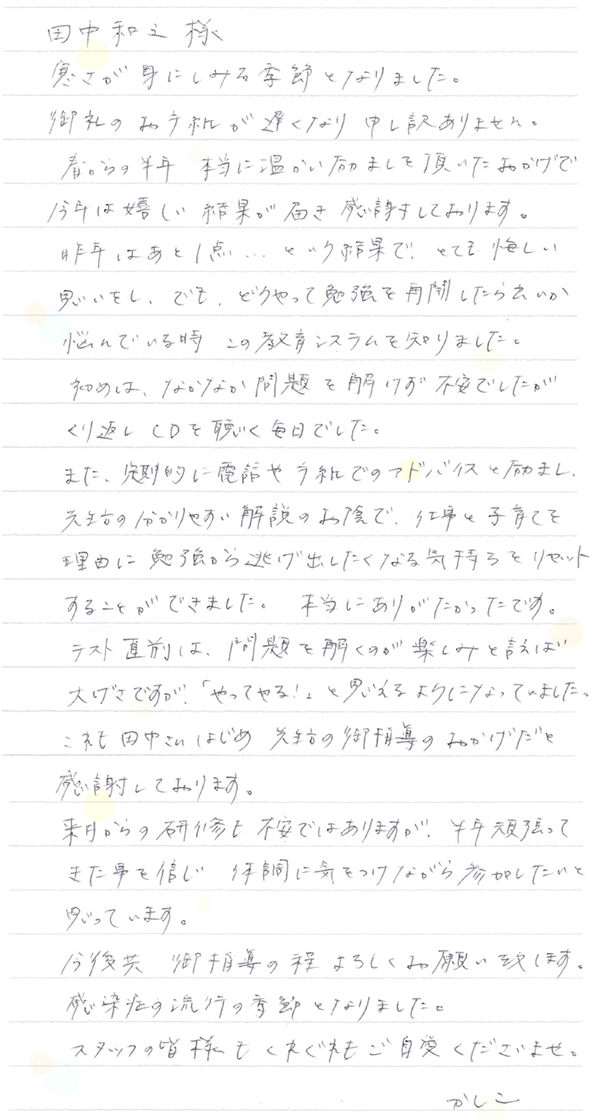 田中和之様
寒さが身にしみる季節となりました。
御礼のお手紙が遅くなり申し訳ありません。
春からの半年 本当に温かい励ましを頂いたおかげで
今年は嬉しい結果が届き感謝しております。
昨年はあと1点… という結果で、とても悔しい
思いをし、でも、どうやって勉強を再開したら良いか
悩んでいる時 この教育システムを知りました。
初めは、なかなか問題を解けず不安でしたが
くり返しCDを聴く毎日でした。
また、定期的に電話や手紙でのアドバイスと励まし、
先生方の分かりやすい解説のお陰で、仕事と子育てを
理由に勉強から逃げ出したくなる気持ちをリセット
することができました。 本当にありがたかったです。
テスト直前は、問題を解くのが楽しみと言えば
大げさですが、「やってやる!」と思えるようになっていました。
これも田中さんはじめ 先生方の御指導のおかげだと
感謝しております。
来月からの研修も不安ではありますが、半年頑張って
きた事を信じ 体調に気をつけながら参加したいと
思っています。
今後共 御指導の程よろしくお願い致します。
感染症の流行の季節となりました。
スタッフの皆様もくれぐれもご自愛くださいませ。
かしこ